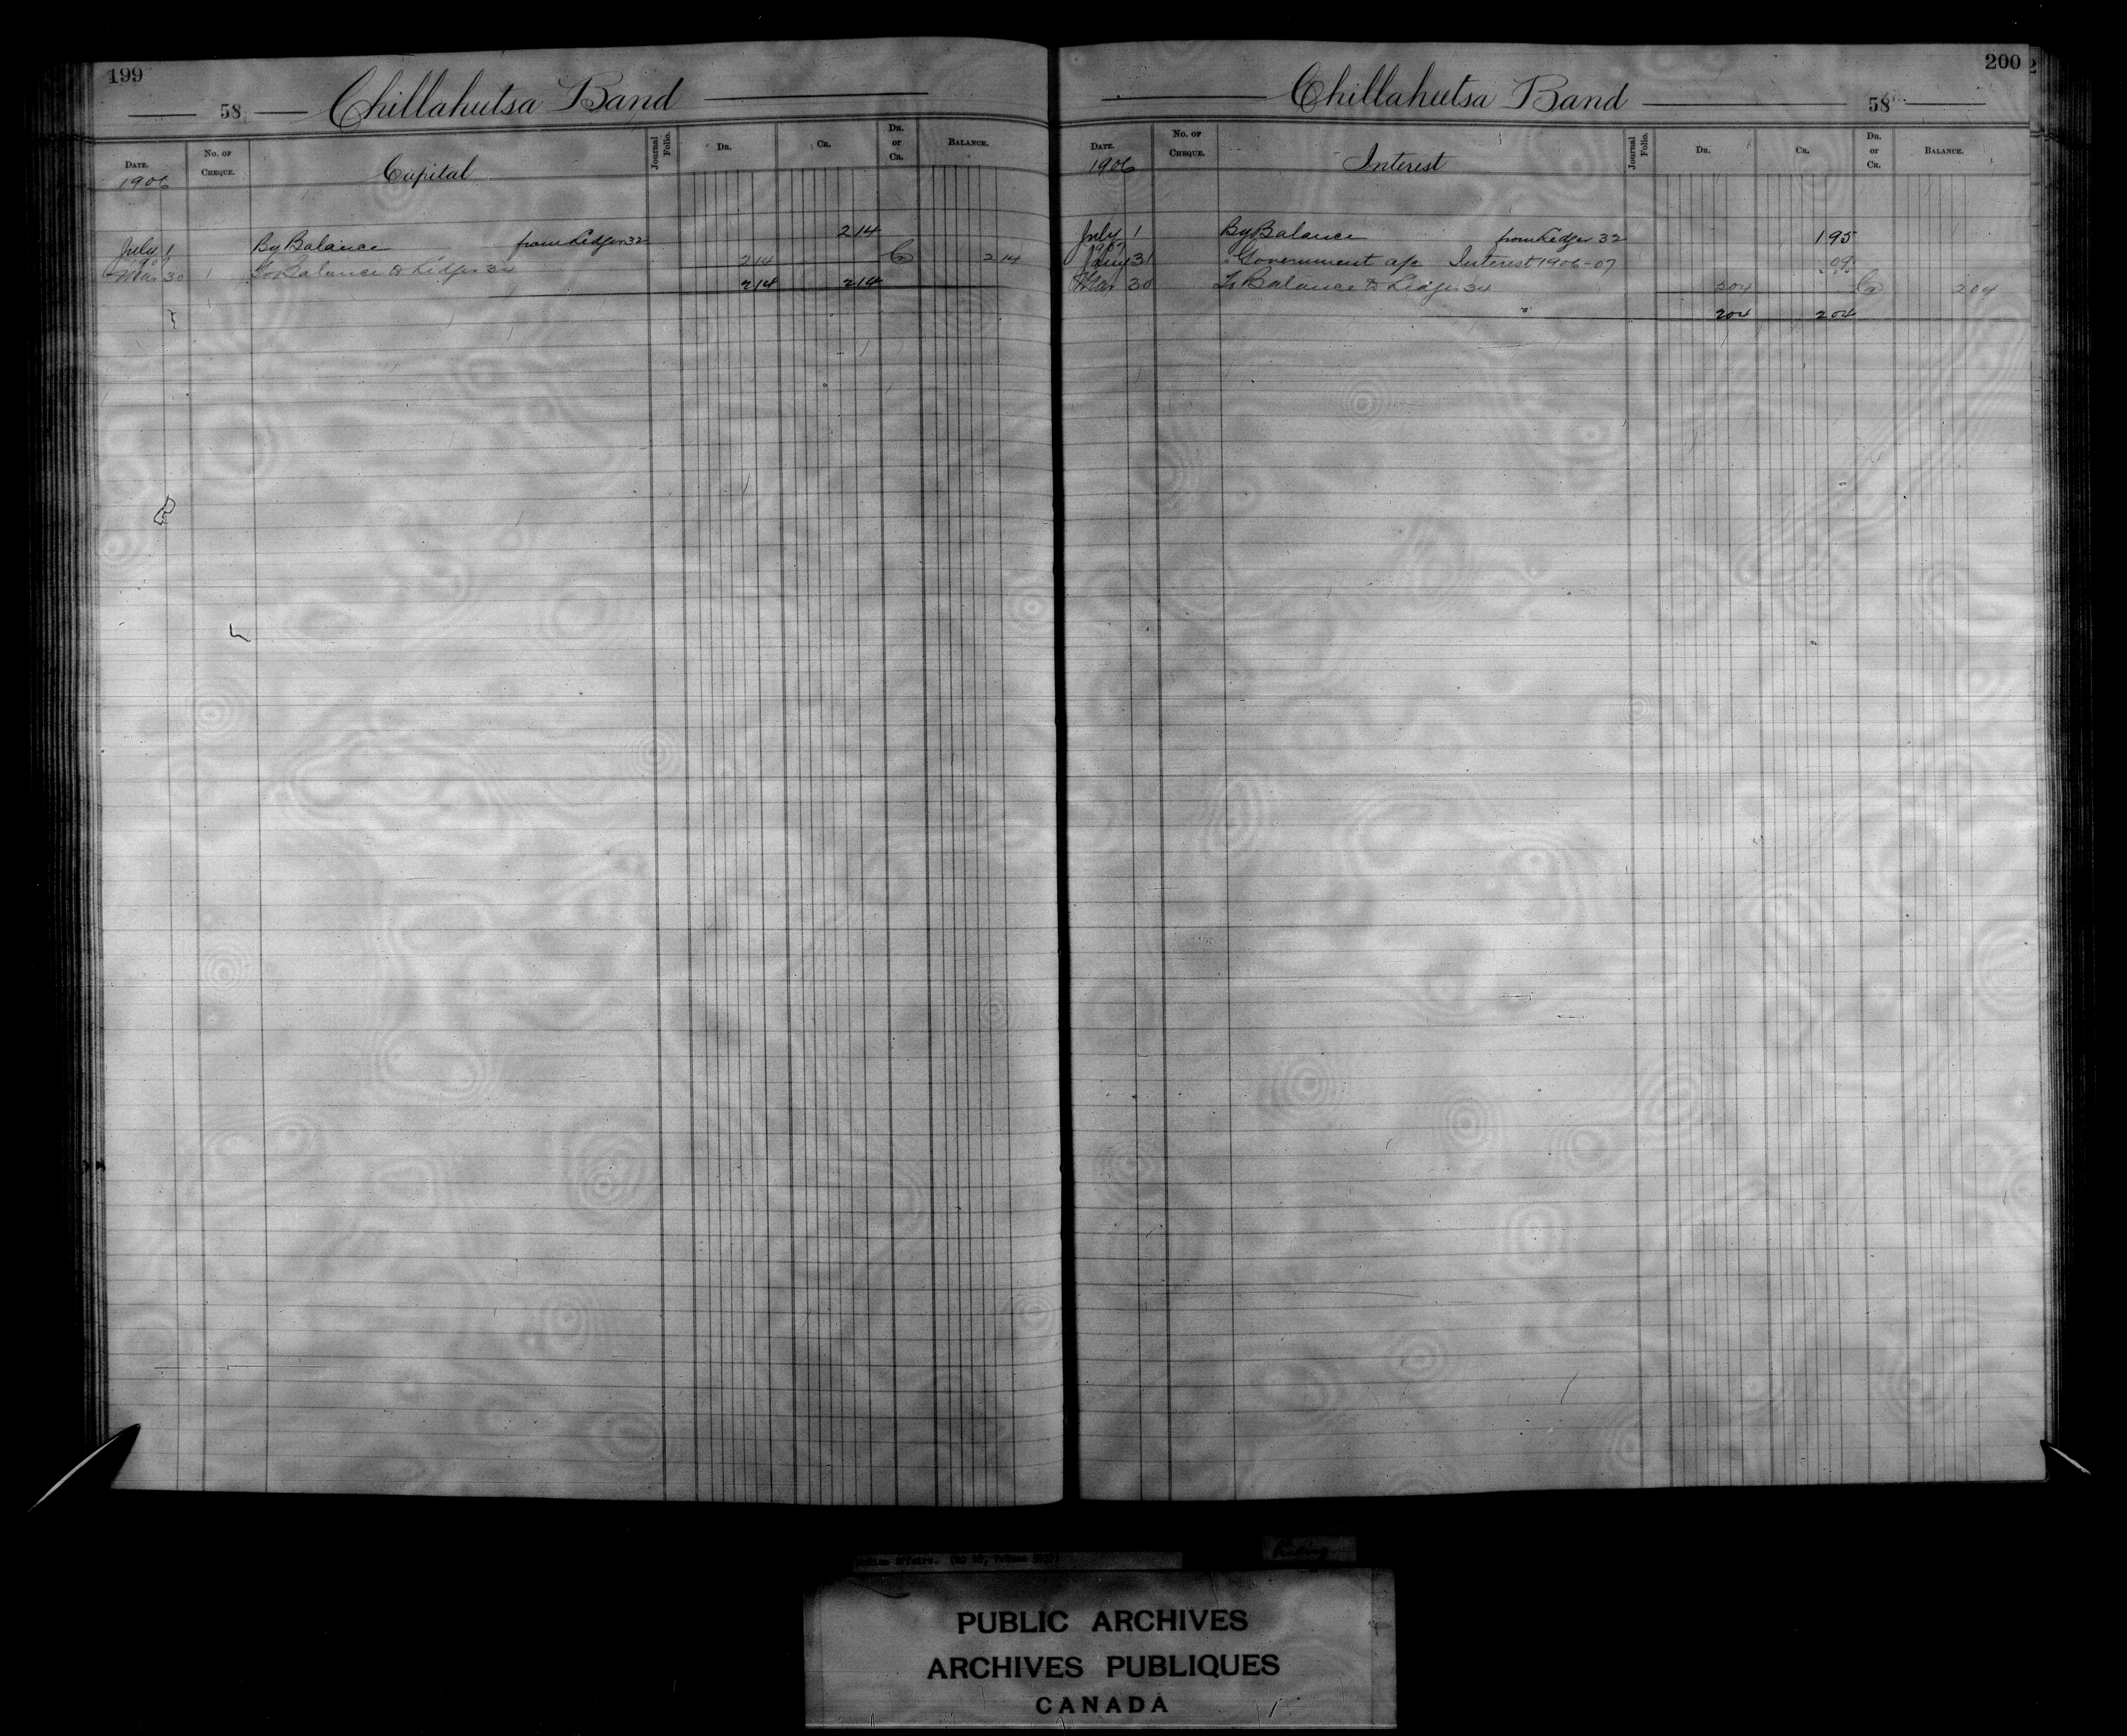 199
58 Chillahutsa Band
DATE. No. OF CHEQUE. Capital Journal Folio. DR. CR. DR. or CR. BALANCE.
1906
July 1 By Balance from Ledger 32 2 14
1907
Mar 30 To Balance to Ledger 34 2 14 Cr 2 14
2 14 2 14
200
Chillahutsa Band 58
DATE. No. OF CHEQUE. Interest Journal Folio. DR. CR. DR. or CR. BALANCE.
1906
July 1 By Balance from Ledger 32 1 95
1907
31 " Government a/c Interest 1906-07 09
Mar 30 To Balance to Ledger 34 2 04 Cr 2 04
2 04 2 04
Indian Affairs. (RG 10, Volume
PUBLIC ARCHIVES
ARCHIVES PUBLIQUES
CANADA